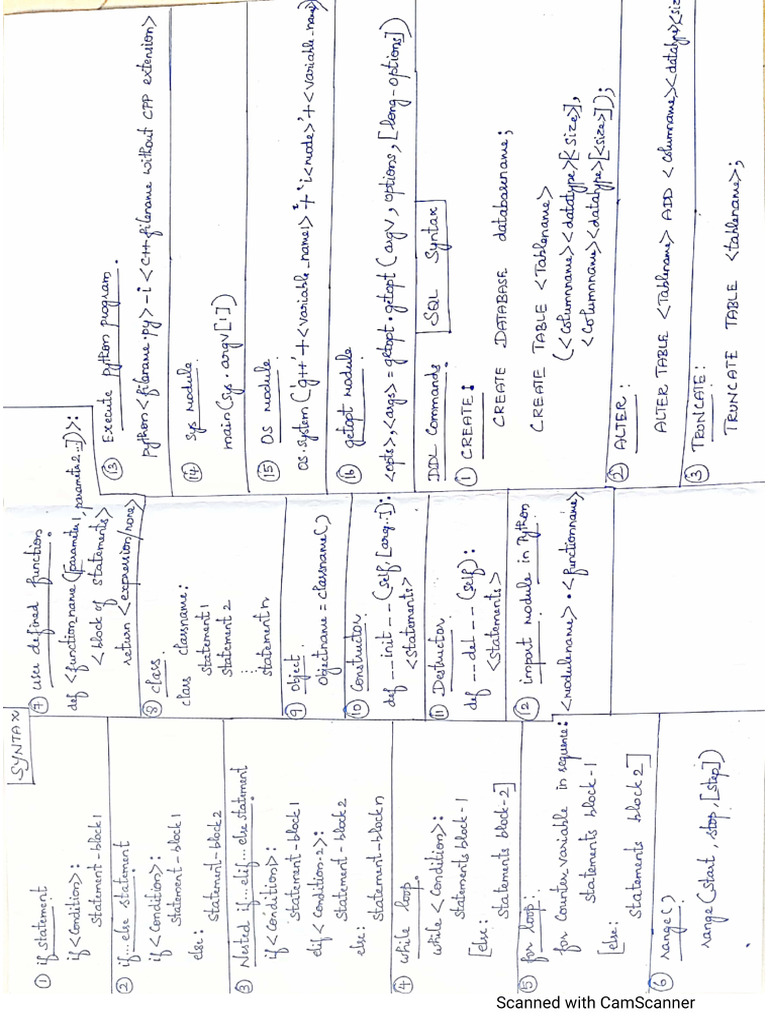 SYNTAX
① if statement
if <Condition>:
statement-block1
② if...else statement
if <Condition>:
statement-block1
else:
statement-block2
③ Nested if...elif...else statement
if <Condition1>:
statement-block1
elif <Condition-2>:
statement-block2
else:
statement-block n
④ while loop.
while <Condition>:
statements block-1
[else:
statements block-2]
⑤ for loop:
for Counter variable in sequence:
statements block-1
[else:
statements block2]
⑥ range()
range(start, stop, [step])
⑦ user defined function
def <function_name ([parameter1, parameter2...])>:
<block of statements>
return <expression/none>
⑧ class.
class classname:
statement1
statement2
⋮
statement n
⑨ Object
Objectname = classname()
⑩ Constructor
def __init__(self, [arg...]):
<statements>
⑪ Destructor
def __del__(self):
<statements>
⑫ import module in Python
<modulename>.<functionname>
⑬ Execute python program.
python <filename.py> -i <C++ filename without CPP extension>
⑭ Sys Module
main(sys.argv[1])
⑮ OS module
os.system('g++' + <variable_name1> + '-i<mode>' + <variable_name>)
⑯ getopt module
<opts>,<args> = getopt.getopt(argv, options, [long-options])
DDL Commands. SQL Syntax
① CREATE:
CREATE DATABASE databasename;
CREATE TABLE <Tablename>
(<Columnname><datatype>[<size>],
<Columnname><datatype>[<size>]);
② ALTER:
ALTER TABLE <Tablename> ADD <Columnname><datatype><siz
③ TRUNCATE:
TRUNCATE TABLE <tablename>;
Scanned with CamScanner